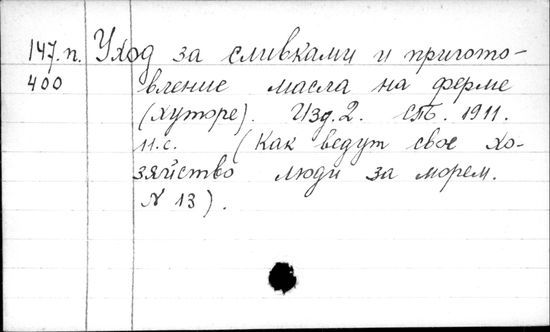 147.п. Уход за сливками и пригото-
400 вление масла на ферме
(хуторе). Изд. 2. Спб. 1911.
11 с. (Как ведут свое хо-
зяйство люди за морем.
N 13).